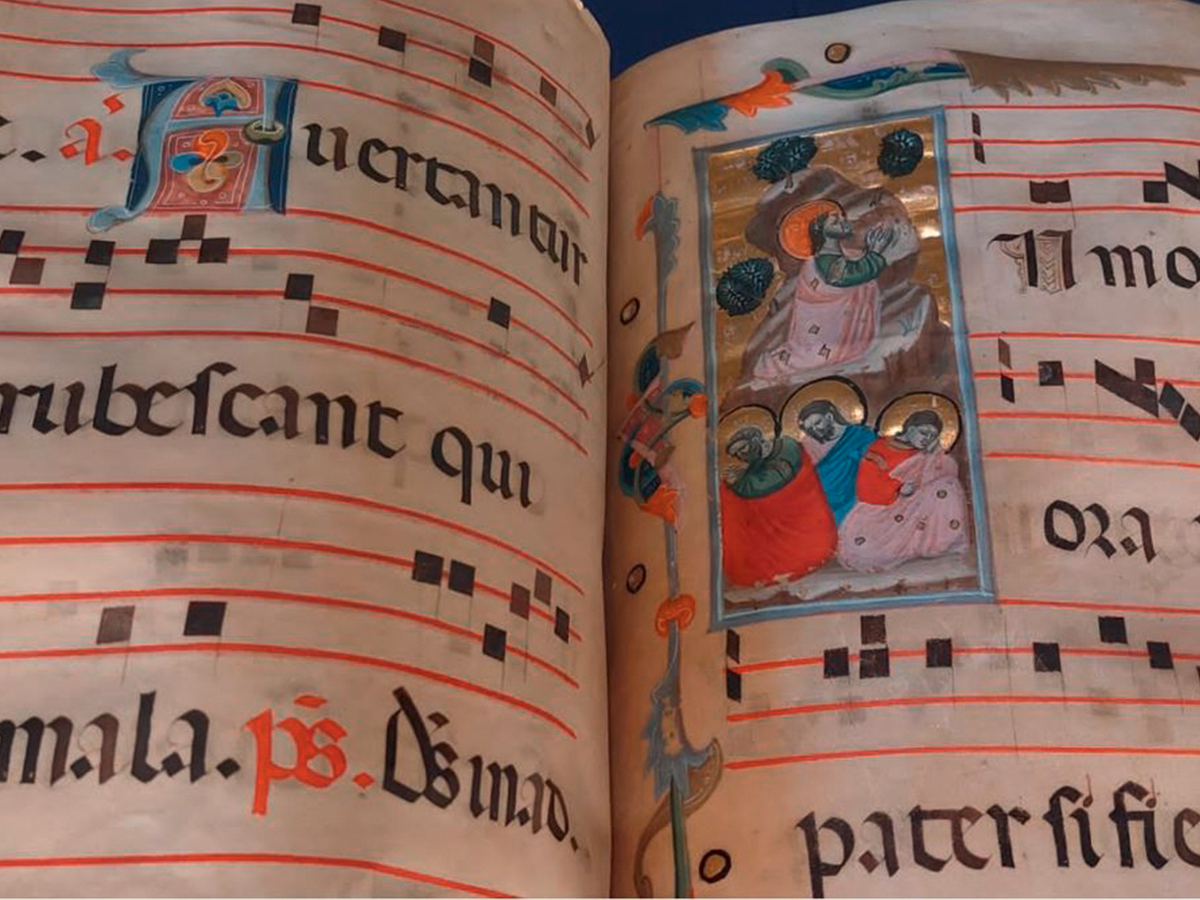 . a. Auertantur
rubescant qui
mala. ps. Ds in ad.
N mo
ora
pater si fie